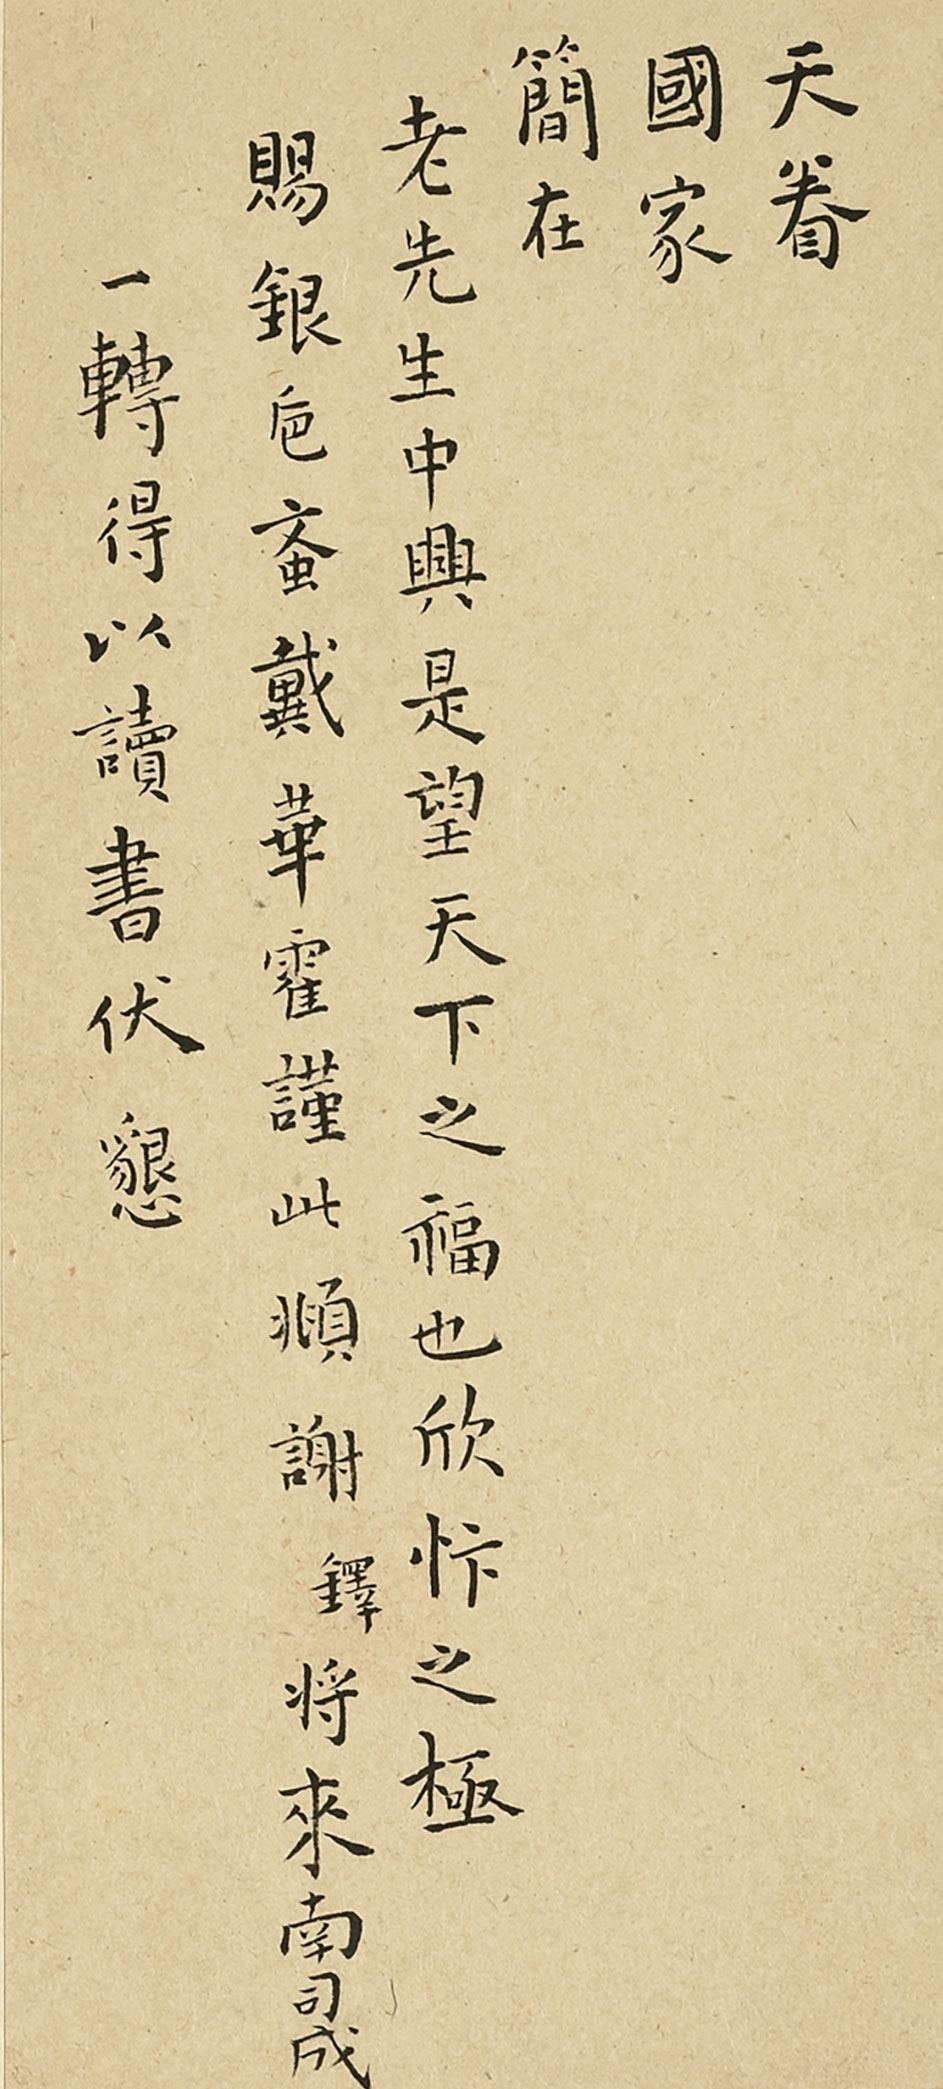 天眷
國家
簡在
老先生中興是望天下之福也欣忭之極
賜銀卮蚉戴華霍謹此順謝鐸將來南司成
一轉得以讀書伏懇